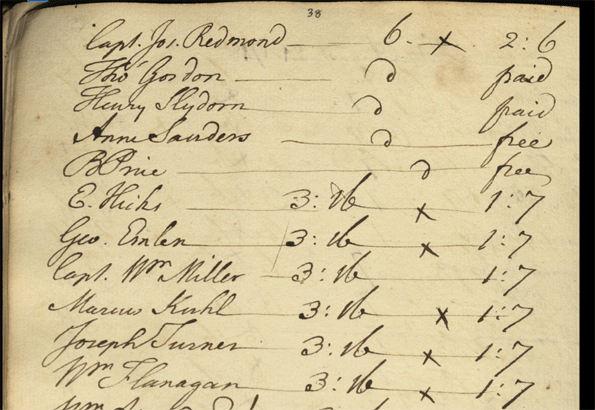 38
Capt. Jos. Redmond 6. x 2:6
Tho.s Gordon d paid
Henry Slydorn d paid
Anne Saunders d free
B Price d free
E. Hicks 3:16 x 1:7
Geo. Emlen 3:16 x 1:7
Capt. Wm Miller 3:16 1:7
Marcus Kuhl 3:16 x 1:7
Joseph Turner 3:16 x 1:7
Wm Flanagan 3:16 x 1:7